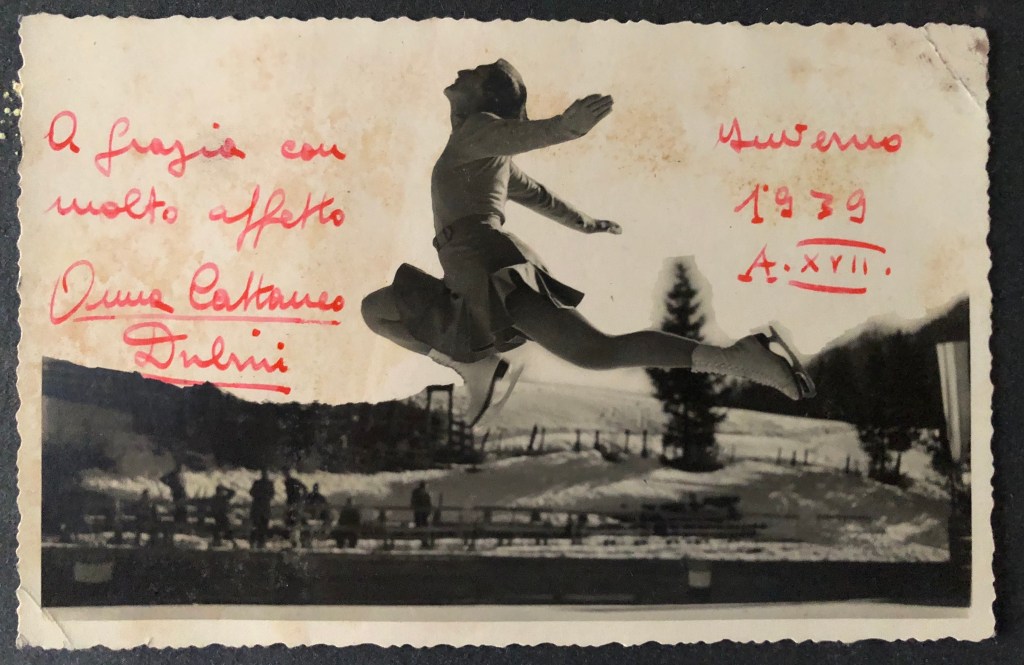 A Grazia con
molto affetto
Anna Cattaneo
Dubini
Inverno
1939
A. XVII.